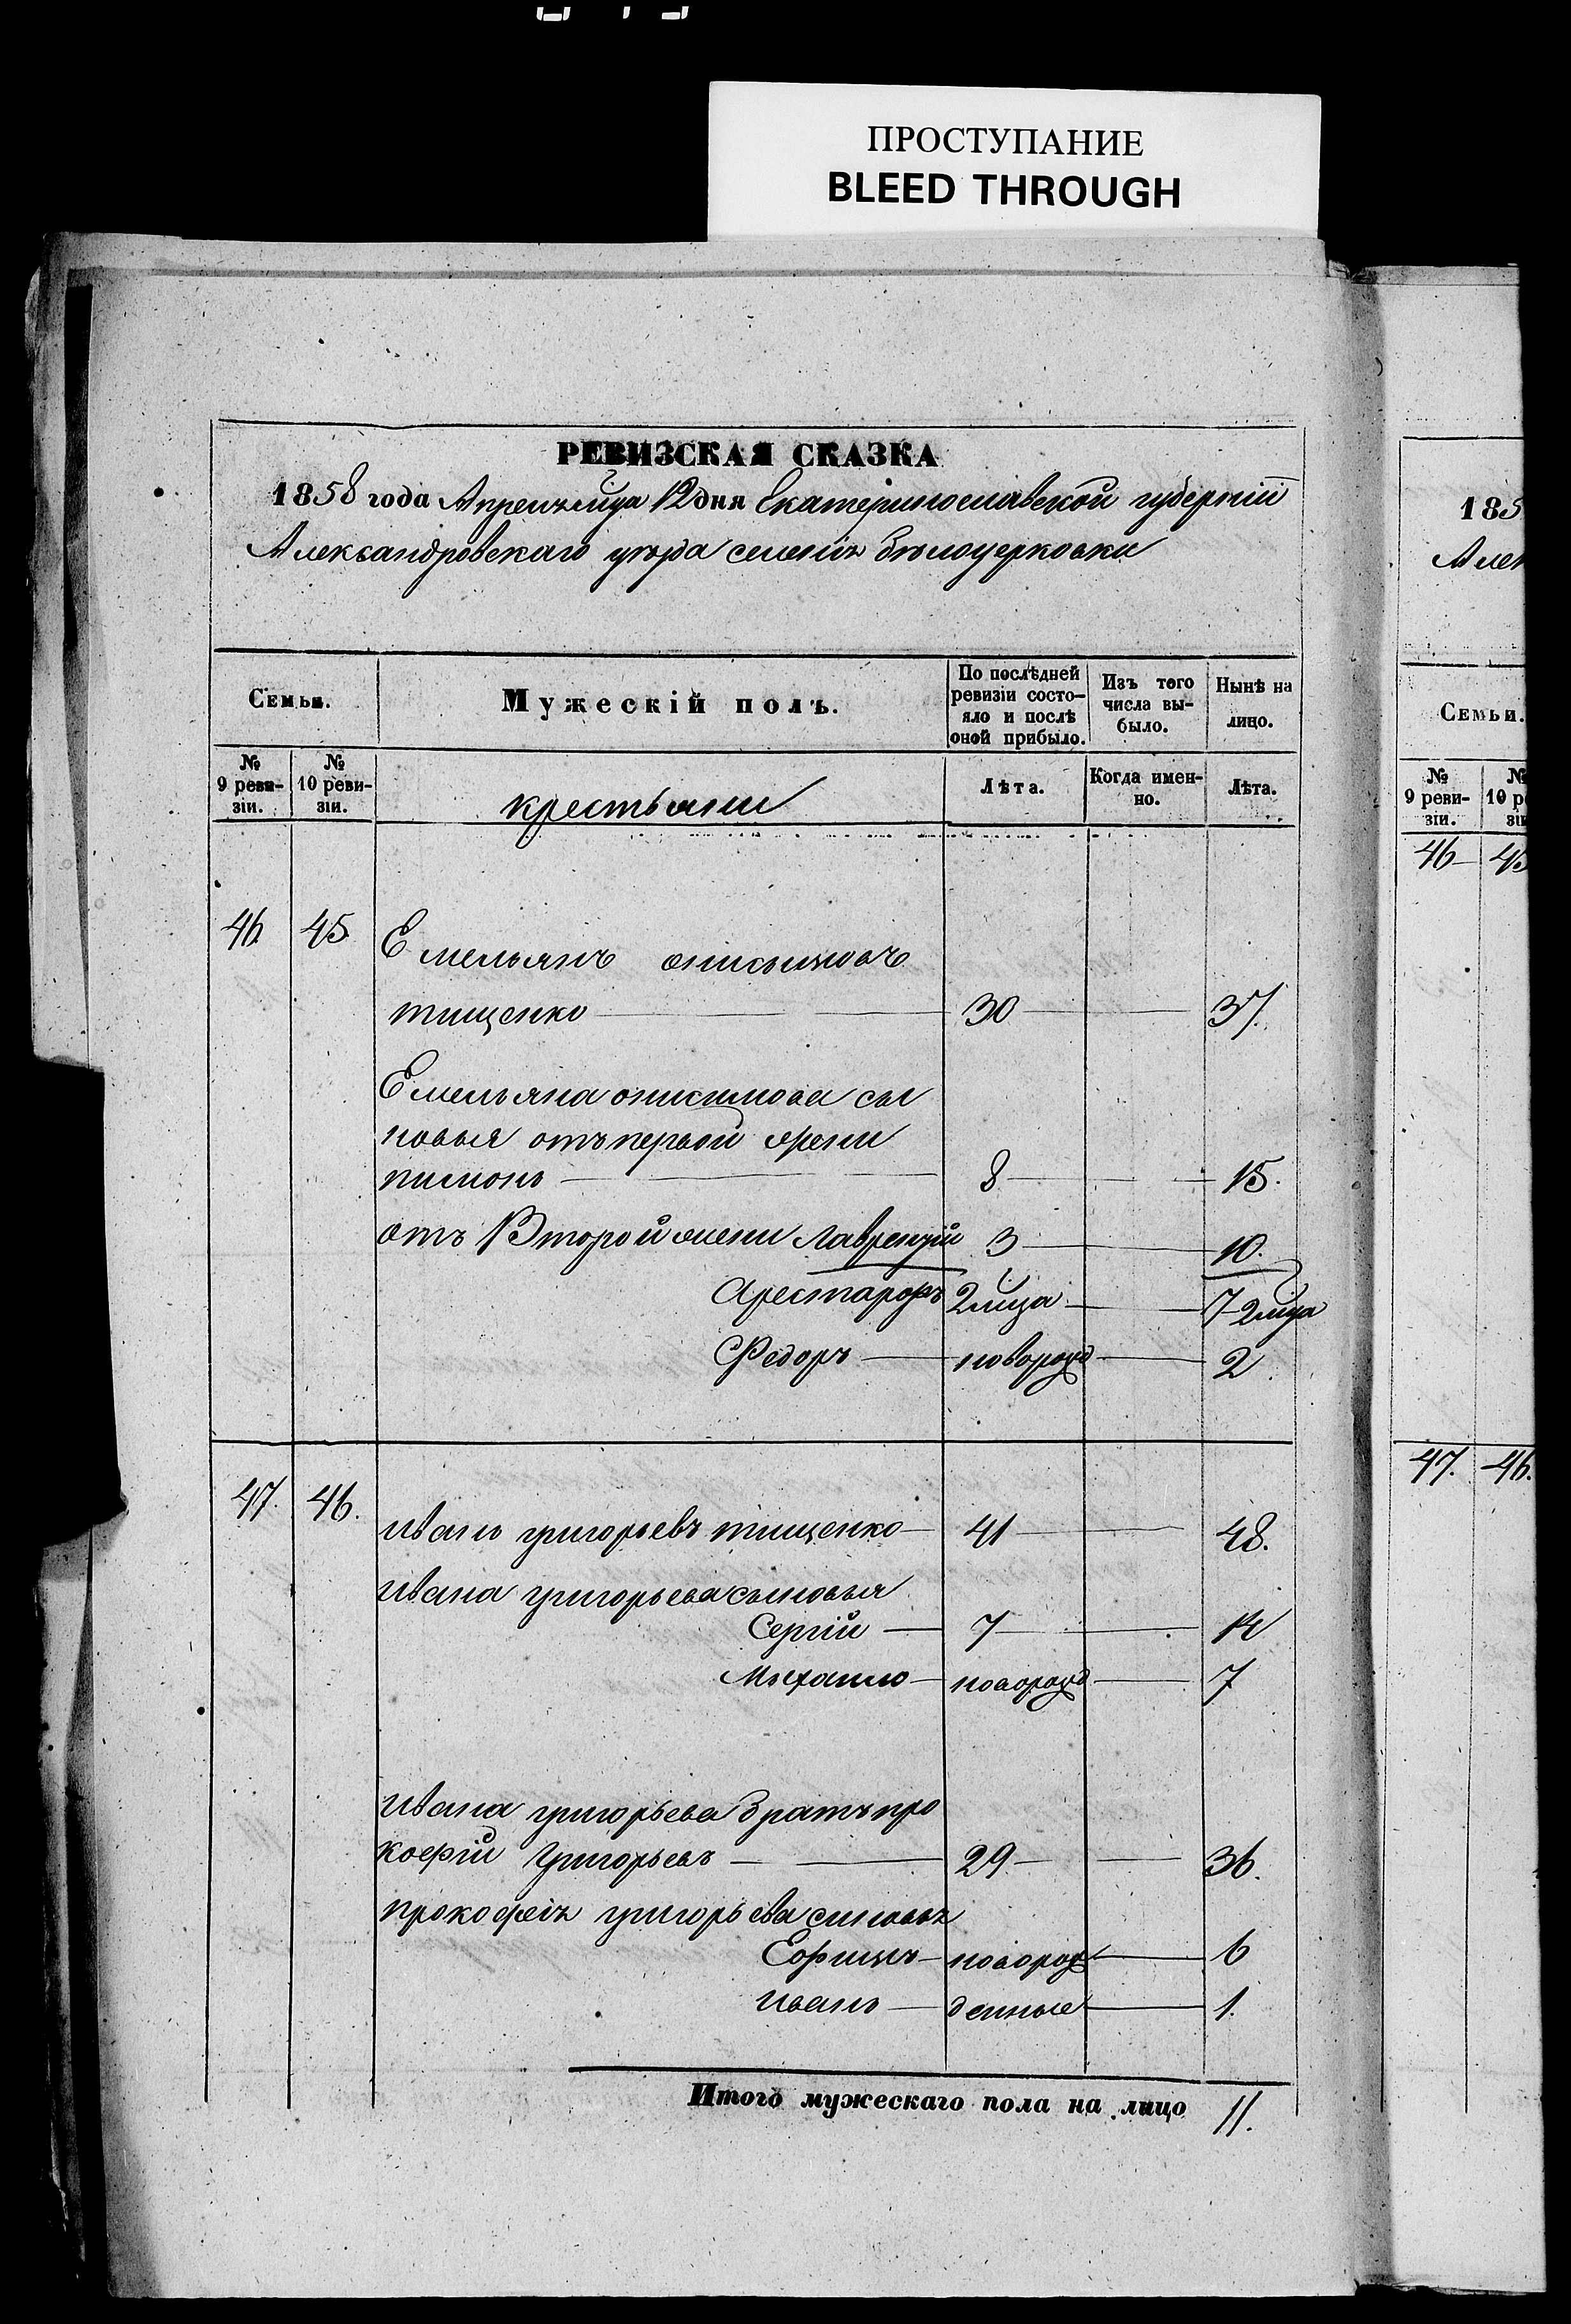 ПРОСТУПАНИЕ
BLEED THROUGH
РЕВИЗСКАЯ СКАЗКА
1858 года Апреля мца 12 дня Екатеринославской губернии
Александровскаго уезда селения Белоцерковки
185
Алек
Семьи.
Мужескій полъ.
По послѣдней ревизіи состояло и послѣ оной прибыло.
Изъ того числа выбыло.
Нынѣ на лицо.
Семьи.
№ 9 ревизіи.
№ 10 ревизіи.
крестьяни
Лѣта.
Когда именно.
Лѣта.
№ 9 ревизіи.
46 45
46 45 Емельянъ онисимовъ
тищенко 30 37.
Емельяна онисимова сы
новья отъ первой жени
пимонъ 8 15.
отъ Второй жени Лаврентій 3 10.
Арестархъ 2 мца 7 2 мца
Федоръ новорожд 2
47. 46.
47. 46. иванъ григорьевъ тищенко 41 48.
ивана григорьева сыновья
Сергій 7 14
Михаило новорожд 7
ивана григорьева братъ про
кофій григорьевъ 29 36.
прокофія григорьева синовья
Ефимъ новорож 6
иванъ денные 1.
Итого мужескаго пола на лицо 11.